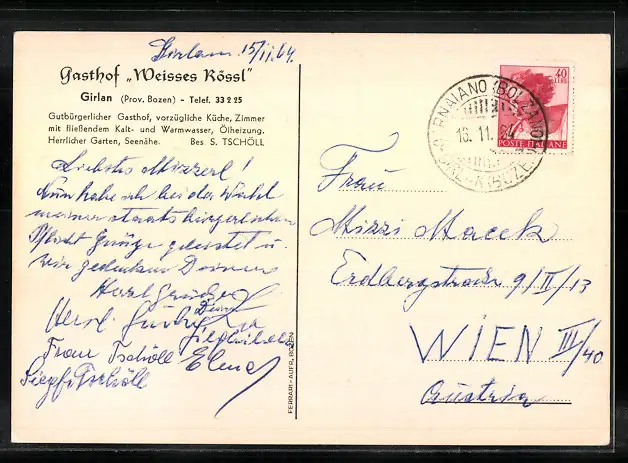 Girlan 15/11.64
Gasthof „Weisses Rössl"
Girlan (Prov. Bozen) - Telef. 33 2 25
Gutbürgerlicher Gasthof, vorzügliche Küche, Zimmer
mit fließendem Kalt- und Warmwasser, Ölheizung.
Herrlicher Garten, Seenähe. Bes S. TSCHÖLL
Liebstes Mizzerl!
Nun habe ich bei der Wahl
meiner staatsbürgerlichen
Pflicht Genüge geleistet u.
wir gedenken Deiner
Herzl
Herzl. Grüße
Frau Tschöll Elena
Siegfr Tschöll
FERRARI-AUER, BOZEN
40
LIRE
POSTE ITALIANE
CORNAIANO (BOLZANO)
16. 11. 64
GIRLAN (BOZEN)
Frau
Mizzi Macek
Erdbergstraße 9/II/13
WIEN III/40
Austria